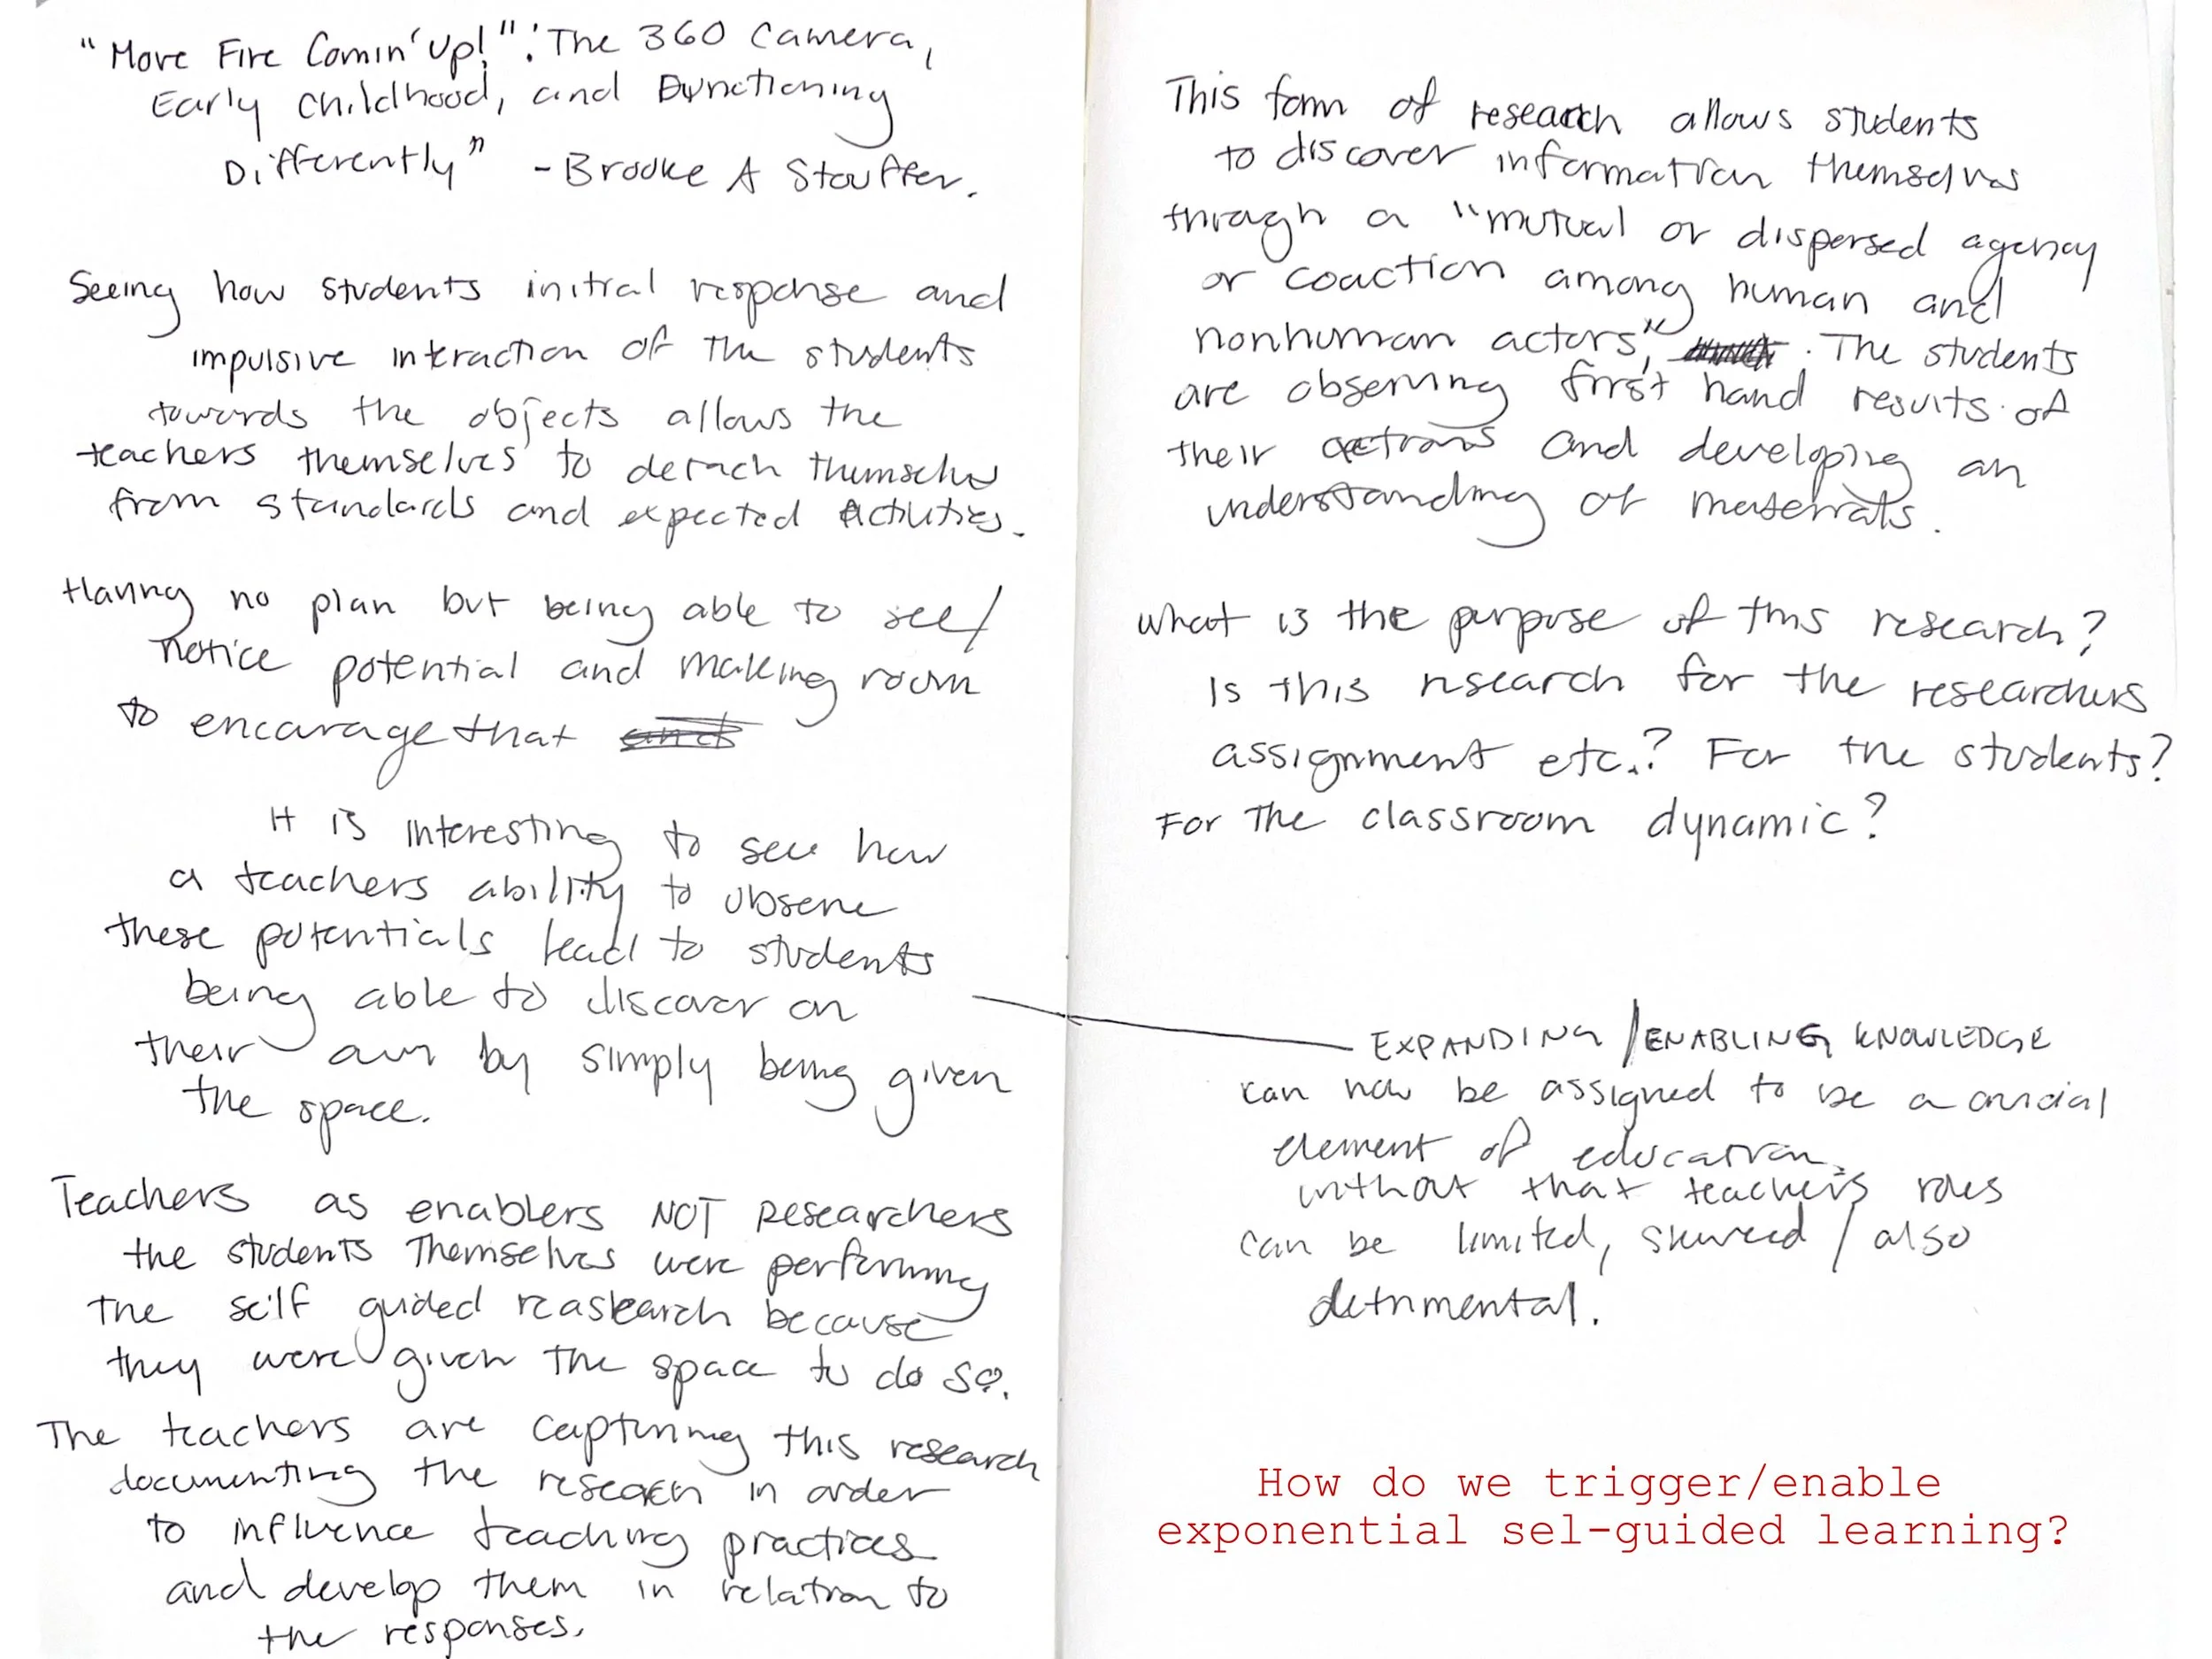 "More Fire Comin' Up!": The 360 Camera,
Early Childhood, and Dynctioning
Differently" - Brooke A Stouffer.
Seeing how students initial response and
impulsive interaction of the students
towards the objects allows the
teachers themselves to detach themselves
from standards and expected Activities.
Having no plan but being able to see/
notice potential and making room
to encourage that
It is interesting to see how
a teachers ability to observe
these potentials lead to students
being able to discover on
their own by simply being given
the space.
Teachers as enablers NOT researchers
the students Themselves were performing
the self guided reasearch because
they were given the space to do so.
The teachers are capturing this research
documenting the research in order
to influence teaching practices
and develop them in relation to
the responses.
This form of research allows students
to discover information themselves
through a "mutual or dispersed agency
or coaction among human and
nonhuman actors", . The students
are observing first hand results of
their actions and developing an
understanding of materials.
what is the purpose of this research?
Is this research for the researchers
assignment etc.? For the students?
For The classroom dynamic?
EXPANDING / ENABLING KNOWLEDGE
can now be assigned to be a crucial
element of education.
without that teacher's roles
can be limited, skewed / also
detrimental.
How do we trigger/enable
exponential sel-guided learning?